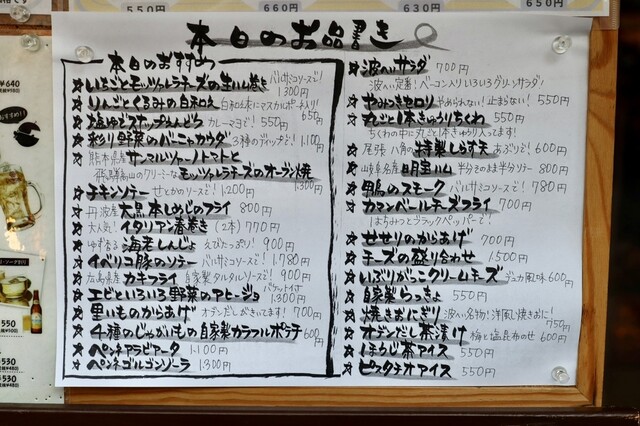 550円
660円
630円
650円
本日のお品書き
本日のおすすめ
★いちごとモッツァレラチーズの生ハム巻き バルサミコソースで! 1,300円
★りんごとくるみの白和え 白和え衣にマスカルポーネ入り! 650円
★塩ゆでスナップえんどう カレーマヨで! 550円
★彩り野菜のバーニャカウダ 3種のディップで! 1,100円
★熊本県産 サンマルツァーノトマトと
飛騨高山のクリーミーなモッツァレラチーズのオーブン焼 1,300円
★子チキンソテー せとかのソースで! 1,200円
★丹波産 大黒本しめじのフライ 800円
★大人気! イタリアン春巻き(2本) 770円
★ゆず香る 海老しんじょ えびたっぷり! 900円
★イベリコ豚のソテー バルサミコソースで! 1,780円
★広島県産 カキフライ 自家製タルタルソースで! 900円
★エビといろいろ野菜のアヒージョ バケット付き 1,300円
★里いものからあげ オデンだしがきいてます! 700円
★4種のじゃがいもの自家製カラフルポテチ 600円
★ペンネアラビアータ 1,100円
★ペンネゴルゴンゾーラ 1,300円
★波へいサラダ 700円
波へい定番!ベーコン入りいろいろグリーンサラダ!
★やみつきセロリ やめられない!止まらない! 550円
★丸ごと1本きゅうりちくわ 550円
ちくわの中に丸ごと1本きゅうり入ってます!
★尾張 八角の特製しらす天 あぶりで! 600円
★岐阜県名産 明宝ハム 半分そのまま半分ソテー 800円
★鴨のスモーク バルサミコソースで! 780円
★カマンベールチーズフライ 700円
はちみつとブラックペッパーで!
★せせりのからあげ 700円
★チーズの盛り合わせ 1,500円
★いぶりがっこクリームチーズ 600円
★自家製らっきょ 550円
★焼きおにぎり 波へい名物!洋風焼きおにぎり 550円
★オデンだし茶漬け 梅と塩昆布のせ 600円
★ほうじ茶アイス 550円
★ピスタチオアイス 550円
¥640
550
530